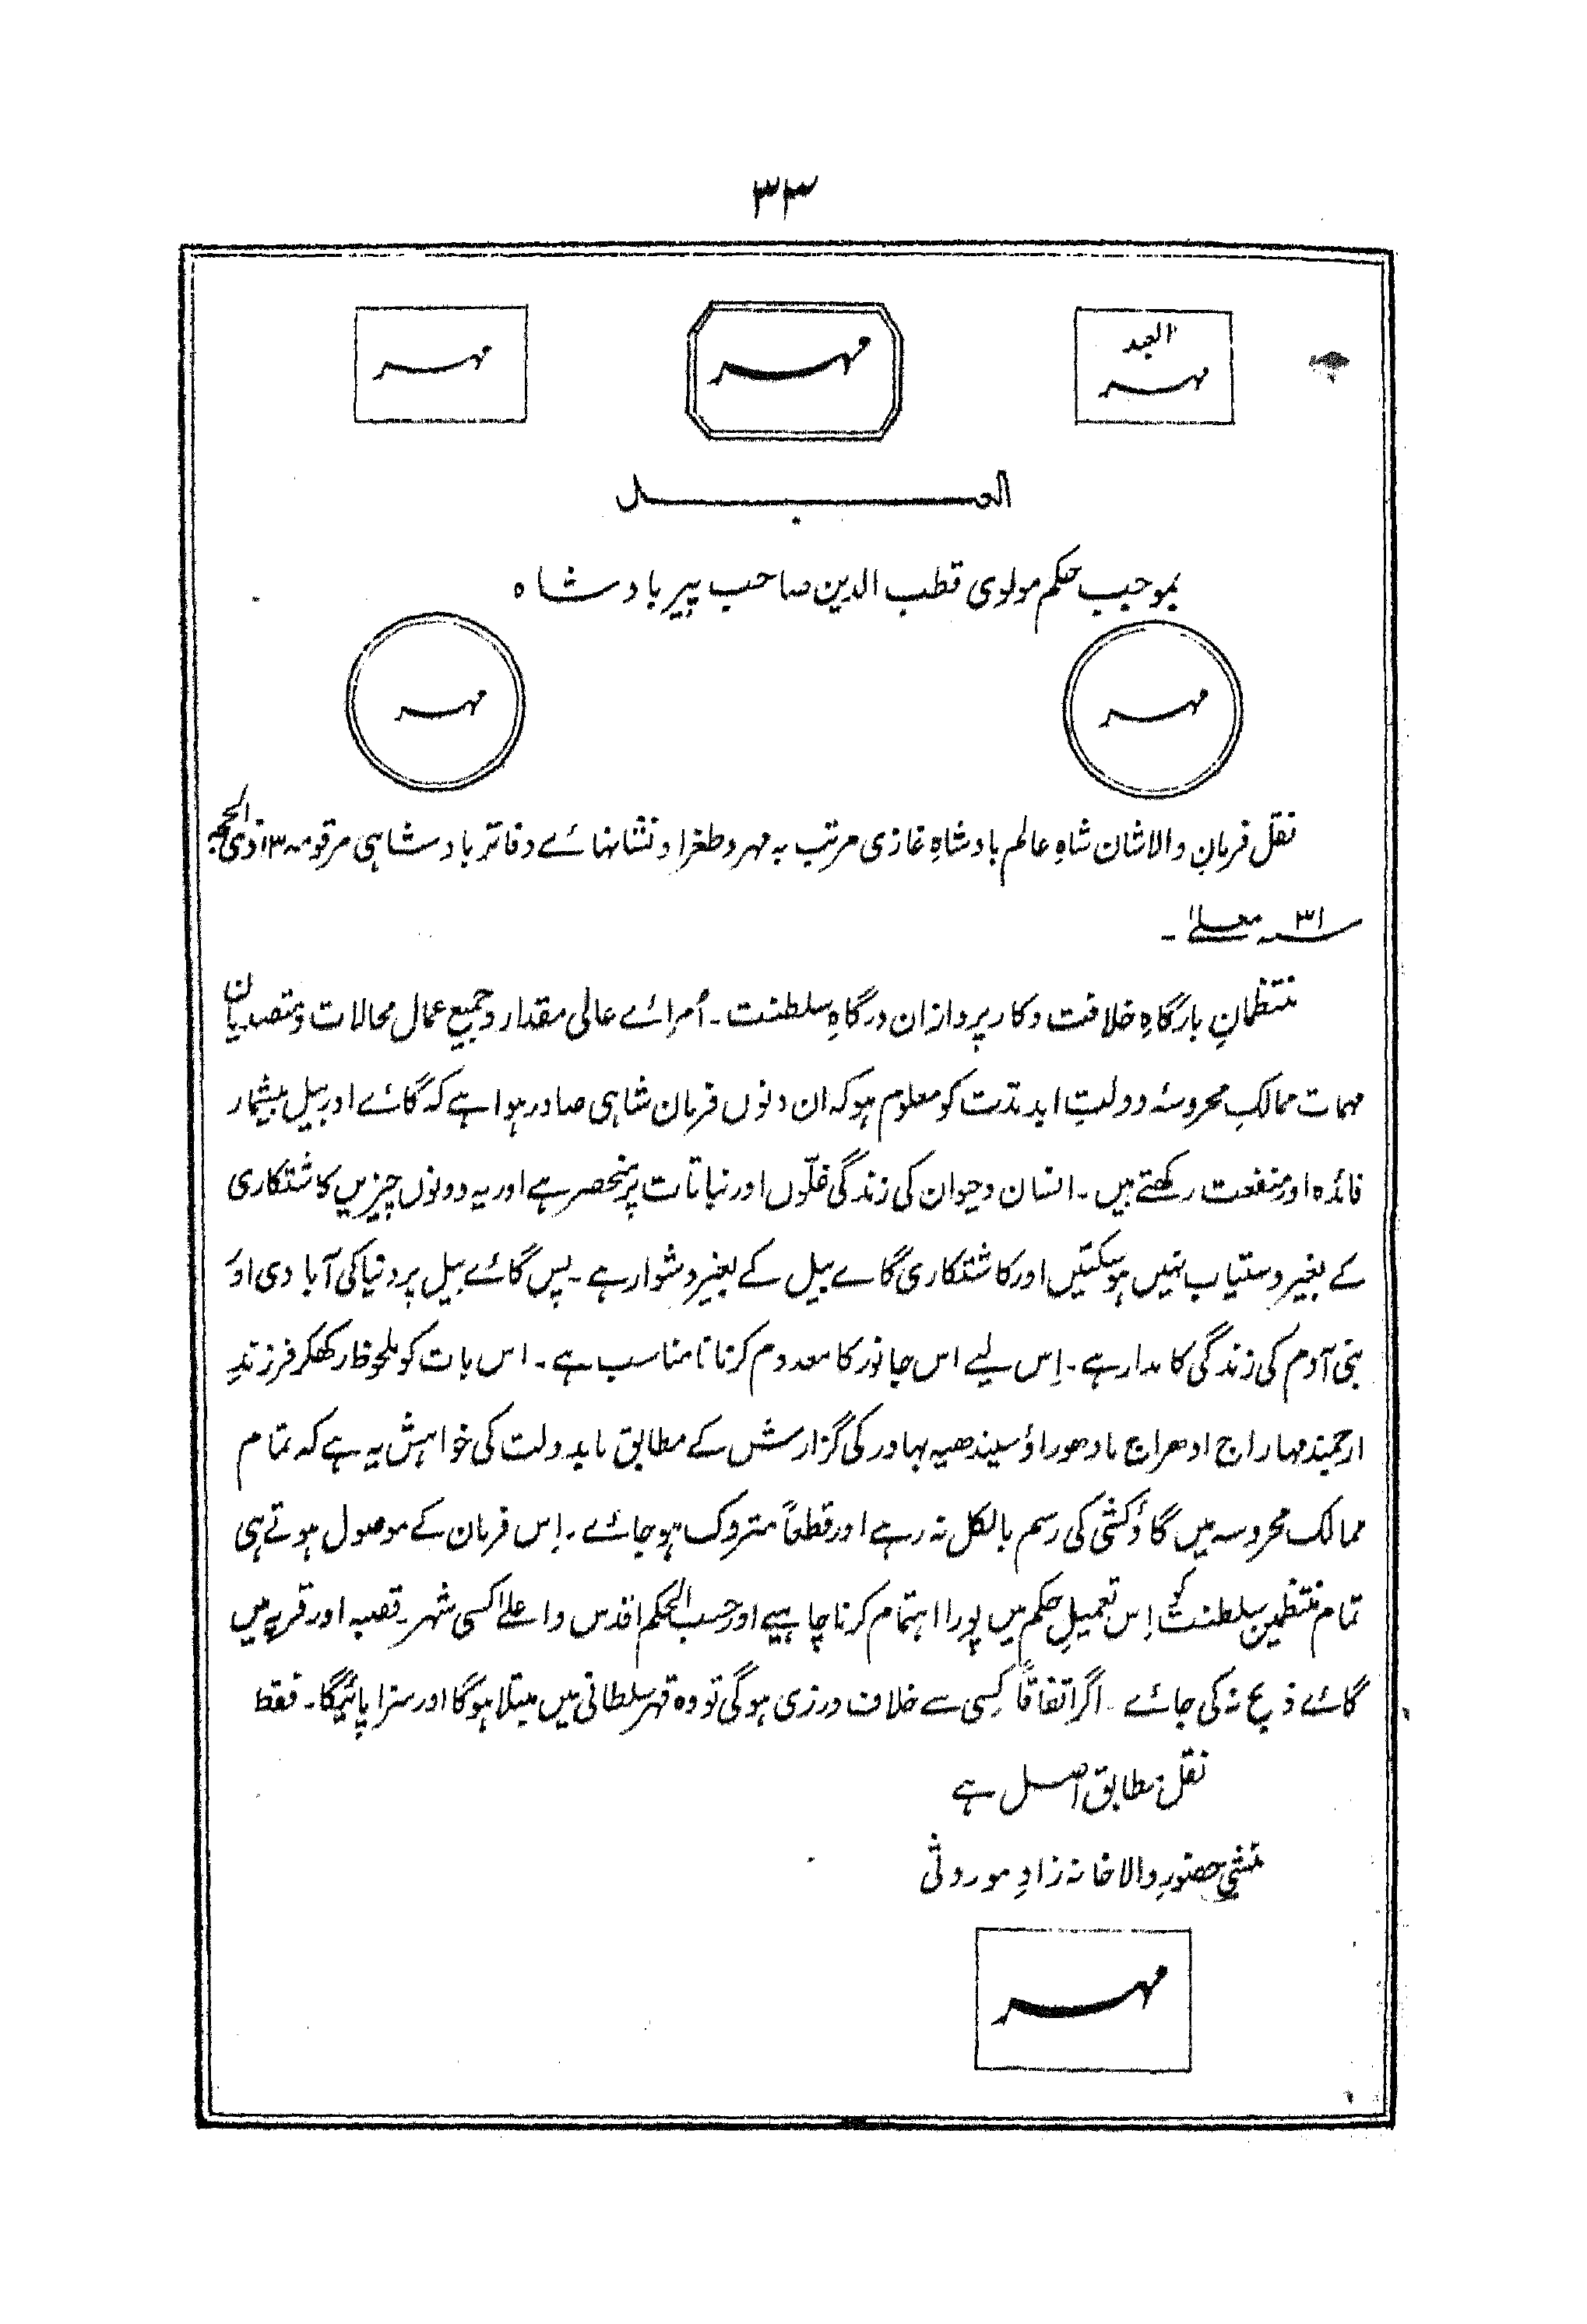 ۳۳
العبد
مہر
مہر
مہر
العبـــــــــد
بموجب حکم مولوی قطب الدین صاحب پیر بادشاہ
مہر
مہر
نقل فرمانِ والاشان شاہِ عالم بادشاہِ غازی مرتب بہ مہر و طغرا و نشانہائے دفاتر بادشاہی مرقومہ ۱۳ ذی الحجہ
سنہ ۳۱ معلےٰ ۔
منتظمانِ بارگاہِ خلافت و کارپردازان درگاہِ سلطنت ۔ اُمرائے عالی مقدار و جمیع عمال محالات و متصدیان
مہمات ممالکِ محروسۂ دولتِ ابد مدت کو معلوم ہو کہ ان دنوں فرمان شاہی صادر ہوا ہے کہ گائے اور بیل بیشمار
فائدہ اور منفعت رکھتے ہیں ۔ انسان و حیوان کی زندگی غلّوں اور نباتات پر منحصر ہے اور یہ دونوں چیزیں کاشتکاری
کے بغیر دستیاب نہیں ہوسکتیں اور کاشتکاری گاے بیل کے بغیر دشوار ہے ۔ پس گائے بیل پر دنیا کی آبادی اور
بنی آدم کی زندگی کا مدار ہے ۔ اِس لیے اس جانور کا معدوم کرنا نامناسب ہے ۔ اس بات کو ملحوظ رکھکر فرزندِ
ارجمند مہاراج ادھراج مادھوراؤ سیندھیہ بہادر کی گزارش کے مطابق مابدولت کی خواہش یہ ہے کہ تمام
ممالک محروسہ میں گاؤکشی کی رسم بالکل نہ رہے اور قطعاً متروک ہوجائے ۔ اِس فرمان کے موصول ہوتے ہی
تمام منتظمین سلطنت کو اِس تعمیلِ حکم میں پورا اہتمام کرنا چاہیے اور حسب الحکم اقدس و اعلےٰ کسی شہر ۔ قصبہ اور قریہ میں
گائے ذبح نہ کی جائے ۔ اگر اتفاقاً کِسی سے خلاف ورزی ہوگی تو وہ قہر سلطانی میں مبتلا ہوگا اور سزا پائیگا ۔ فقط
نقل مطابق اصل ہے
منشی حضورِ والا خانہ زادِ موروثی
مہر